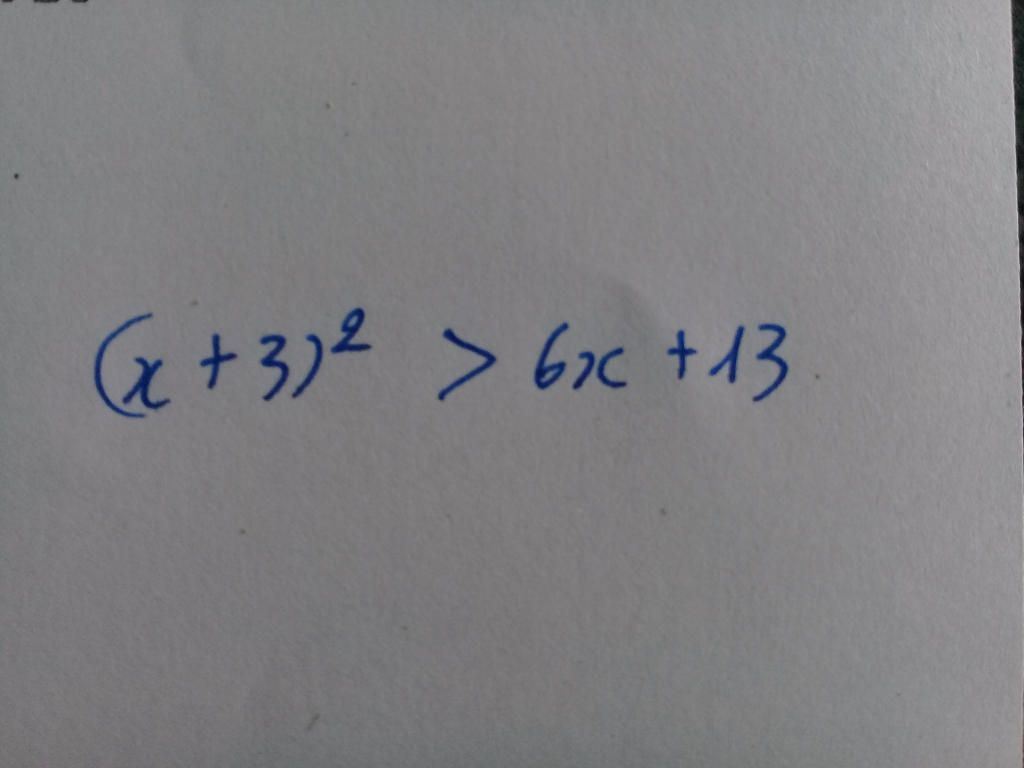 (x+3)² > 6x + 13